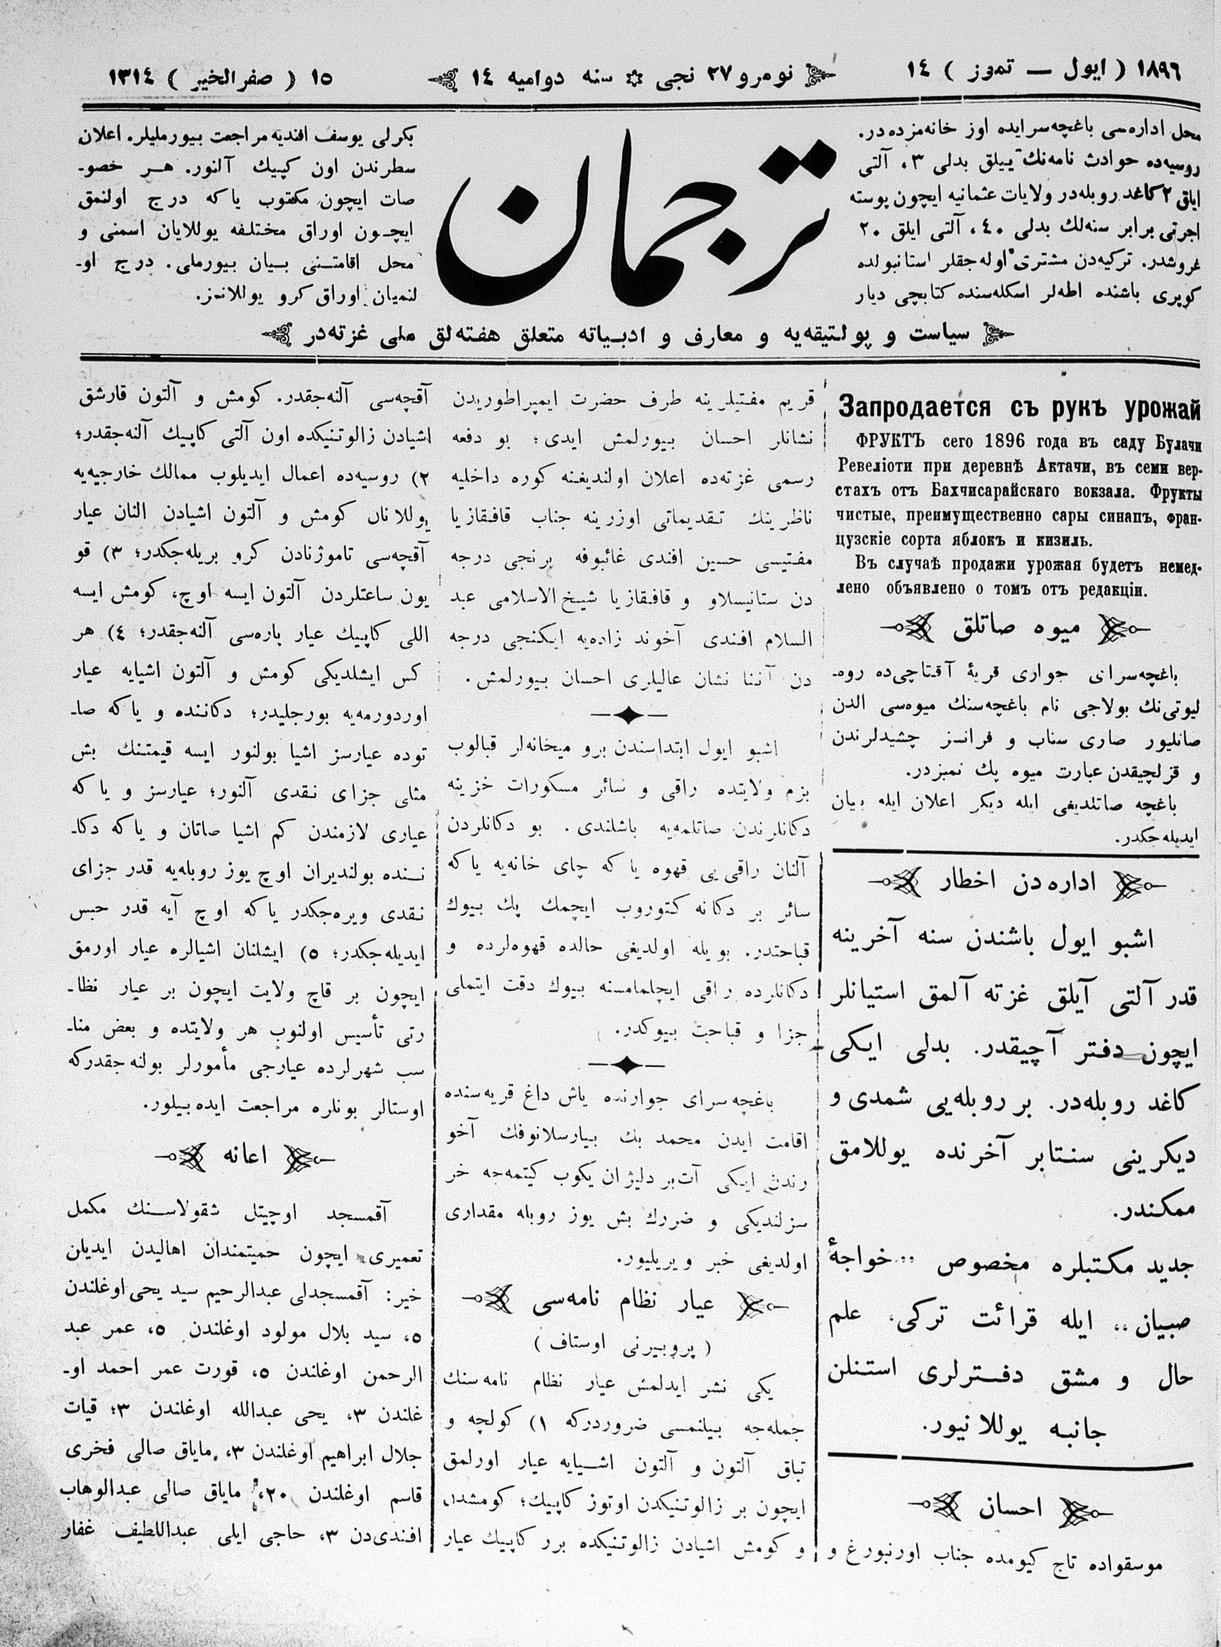 ١٨٩٦ ( ايول — تموز ) ١٤
نومرو ٢٧ نجی ✲ سنه دواميه ١٤
١٥ ( صفر الخير ) ١٣١٤
محل اداره‌سی باغچه‌سرايده اوز خانه‌مزده در.
روسيه‌ده حوادث نامه‌نك ييللق بدلی ٣، آلتی
ايلق ٢ كاغد روبله‌در ولايات عثمانيه ايچون پوسته
اجرتی برابر سنه‌لك بدلی ٤٠، آلتی ايلق ٢٠
غروشدر. تركيه‌دن مشتری اوله جقلر استانبولده
كوپری باشنده اطه‌لر اسكله‌سنده كتابچی ديار
ترجمان
بكرلی يوسف افنديه مراجعت بيورمليلر. اعلان
سطرندن اون كپيك آلنور. هر خصو-
صات ايچون مكتوب ياكه درج اولنمق
ايچون اوراق مختلفه يوللايان اسمنی و
محل اقامتنی بيان بيورملی. درج او-
لنميان اوراق كرو يوللانمز.
سياست و پولتيقه‌يه و معارف و ادبياته متعلق هفته‌لق ملی غزته‌در
Запродается съ рукъ урожай
ФРУКТЪ сего 1896 года въ саду Булачи
Ревеліоти при деревнѣ Актачи, въ семи вер-
стахъ отъ Бахчисарайскаго вокзала. Фрукты
чистые, преимущественно сары синапъ, фран-
цузскіе сорта яблокъ и кизиль.
Въ случаѣ продажи урожая будетъ немед-
лено объявлено о томъ отъ редакціи.
ميوه صاتلق
باغچه‌سرای جواری قريۀ آقتاچی‌ده روه-
ليوتی‌نك بولاجی نام باغچه‌سنك ميوه‌سی الدن
صاتليور صاری سناپ و فرانسز چشيدلرندن
و قزلچيقدن عبارت ميوه پك تميزدر.
باغچه صاتلديغی ايله ديكر اعلان ايله بيان
ايديله جكدر.
اداره دن اخطار
اشبو ايول باشندن سنه آخرينه
قدر آلتی آيلق غزته آلمق استيانلر
ايچون دفتر آچيقدر. بدلی ايكی
كاغد روبله‌در. بر روبله‌يی شمدی و
ديكرينی سنتابر آخرنده يوللامق
ممكندر.
جديد مكتبلره مخصوص ,,خواجۀ
صبيان,, ايله قرائت تركی، علم
حال و مشق دفترلری استنلن
جانبه يوللانيور.
احسان
موسقواده تاج كيومده جناب اورنبورغ و
قريم مفتيلرينه طرف حضرت ايمپراطوريدن
نشانلر احسان بيورلمش ايدی؛ بو دفعه
رسمی غزته‌ده اعلان اولنديغنه كوره داخليه
ناظرينك تقديماتی اوزرينه جناب قافقازيا
مفتيسی حسين افندی غائبوفه برنجی درجه
دن ستانيسلاو و قافقازيا شيخ الاسلامی عبد
السلام افندی آخوند زاده‌يه ايكنجی درجه
دن آننا نشان عاليلری احسان بيورلمش.
اشبو ايول ابتداسندن برو ميخانه‌لر قبالوب
بزم ولايتده راقی و سائر مسكورات خزينه
دكانلرندن صاتلمه‌يه باشلندی. بو دكانلردن
آلنان راقی‌يی قهوه ياكه چای خانه‌يه ياكه
سائر بر دكانه كتوروب ايچمك پك بيوك
قباحتدر. بويله اولديغی حالده قهوه‌لرده و
دكانلرده راقی ايچلمامسنه بيوك دقت ايتملی
جزا و قباحت بيوكدر.
باغچه‌سرای جوارنده ياش داغ قريه‌سنده
اقامت ايدن محمد بك بيارسلانوفك آخو
رندن ايكی آت بر دليژان يكوب كيتمه‌جه خر
سزلنديكی و ضررك بش يوز روبله مقداری
اولديغی خبر ويريليور.
عيار نظام نامه‌سی
( پروبيرنی اوستاف )
يكی نشر ايدلمش عيار نظام نامه‌سنك
جمله‌جه بيلنمسی ضروردركه ١) كولچه و
تباق آلتون و آلتون اشيايه عيار اورلمق
ايچون بر زالوتنيكدن اوتوز كاپيك؛ كومشدن
و كومش اشيادن زالوتنيكده برر كاپيك عيار
آقچه‌سی آلنه‌جقدر. كومش و آلتون قارشق
اشيادن زالوتنيكده اون آلتی كاپيك آلنه‌جقدر؛
٢) روسيه‌ده اعمال ايديلوب ممالك خارجيه‌يه
يوللانان كومش و آلتون اشيادن النان عيار
آقچه‌سی تاموژنادن كرو بريله‌جكدر؛ ٣) قو
يون ساعتلردن آلتون ايسه اوچ، كومش ايسه
اللی كاپيك عيار پاره‌سی آلنه‌جقدر؛ ٤) هر
كس ايشلديكی كومش و آلتون اشيايه عيار
اوردورمه‌يه بورجليدر؛ دكاننده و ياكه صا-
توده عيارسز اشيا بولنور ايسه قيمتنك بش
مثلی جزای نقدی آلنور؛ عيارسز و ياكه
عياری لازمندن كم اشيا صاتان و ياكه دكا-
ننده بولنديران اوچ يوز روبله‌يه قدر جزای
نقدی ويره‌جكدر ياكه اوچ آيه قدر حبس
ايديله‌جكدر؛ ٥) ايشلنان اشيالره عيار اورمق
ايچون بر قاچ ولايت ايچون بر عيار نظا-
رتی تأسيس اولنوب هر ولايتده و بعض منا-
سب شهرلرده عيارجی مأمورلر بولنه جقدركه
اوستالر بونلره مراجعت ايده بيلور.
اعانه
آقمسجد اوچيتل شقولاسنك مكمل
تعميری ايچون حميتمندان اهاليدن ايديلن
خير: آقمسجدلی عبدالرحيم سيد يحی اوغلندن
٥، سيد بلال مولود اوغلندن ٥، عمر عبد
الرحمن اوغلندن ٥، قورت عمر احمد او-
غلندن ٣، يحی عبدالله اوغلندن ٣؛ قيات
جلال ابراهيم اوغلندن ٣، ماياق صالی فخری
قاسم اوغلندن ٢٠، ماياق صالی عبدالوهاب
افندی‌دن ٣، حاجی ايلی عبداللطيف غفار